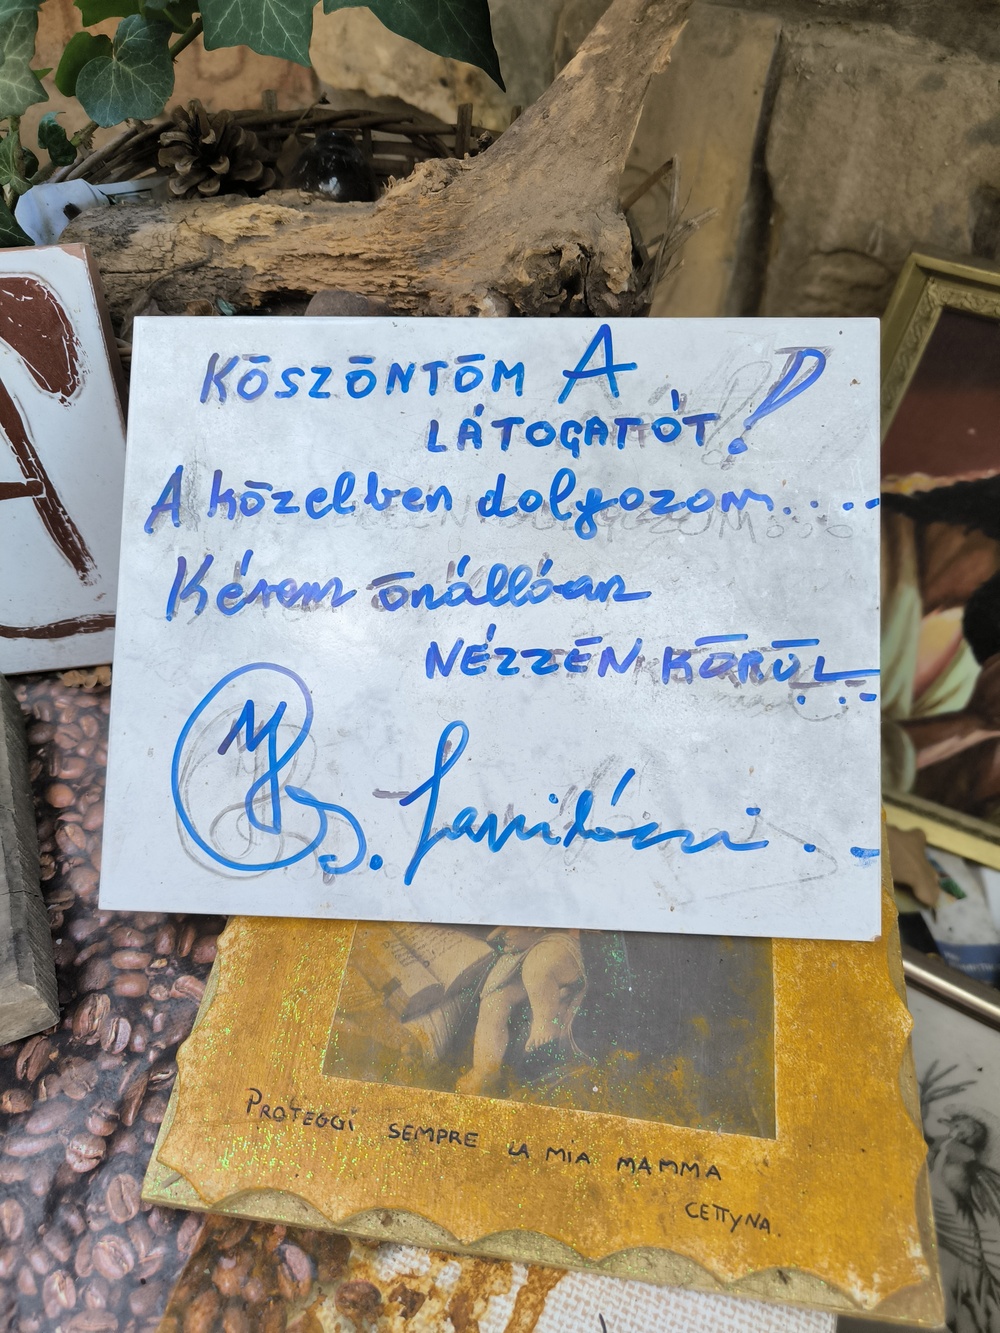 KÖSZÖNTÖM A
LÁTOGATÓT!
A közelben dolgozom....
Kérem önállóan
NÉZZEN KÖRÜL...
PROTEGGI SEMPRE LA MIA MAMMA
CETTYNA.